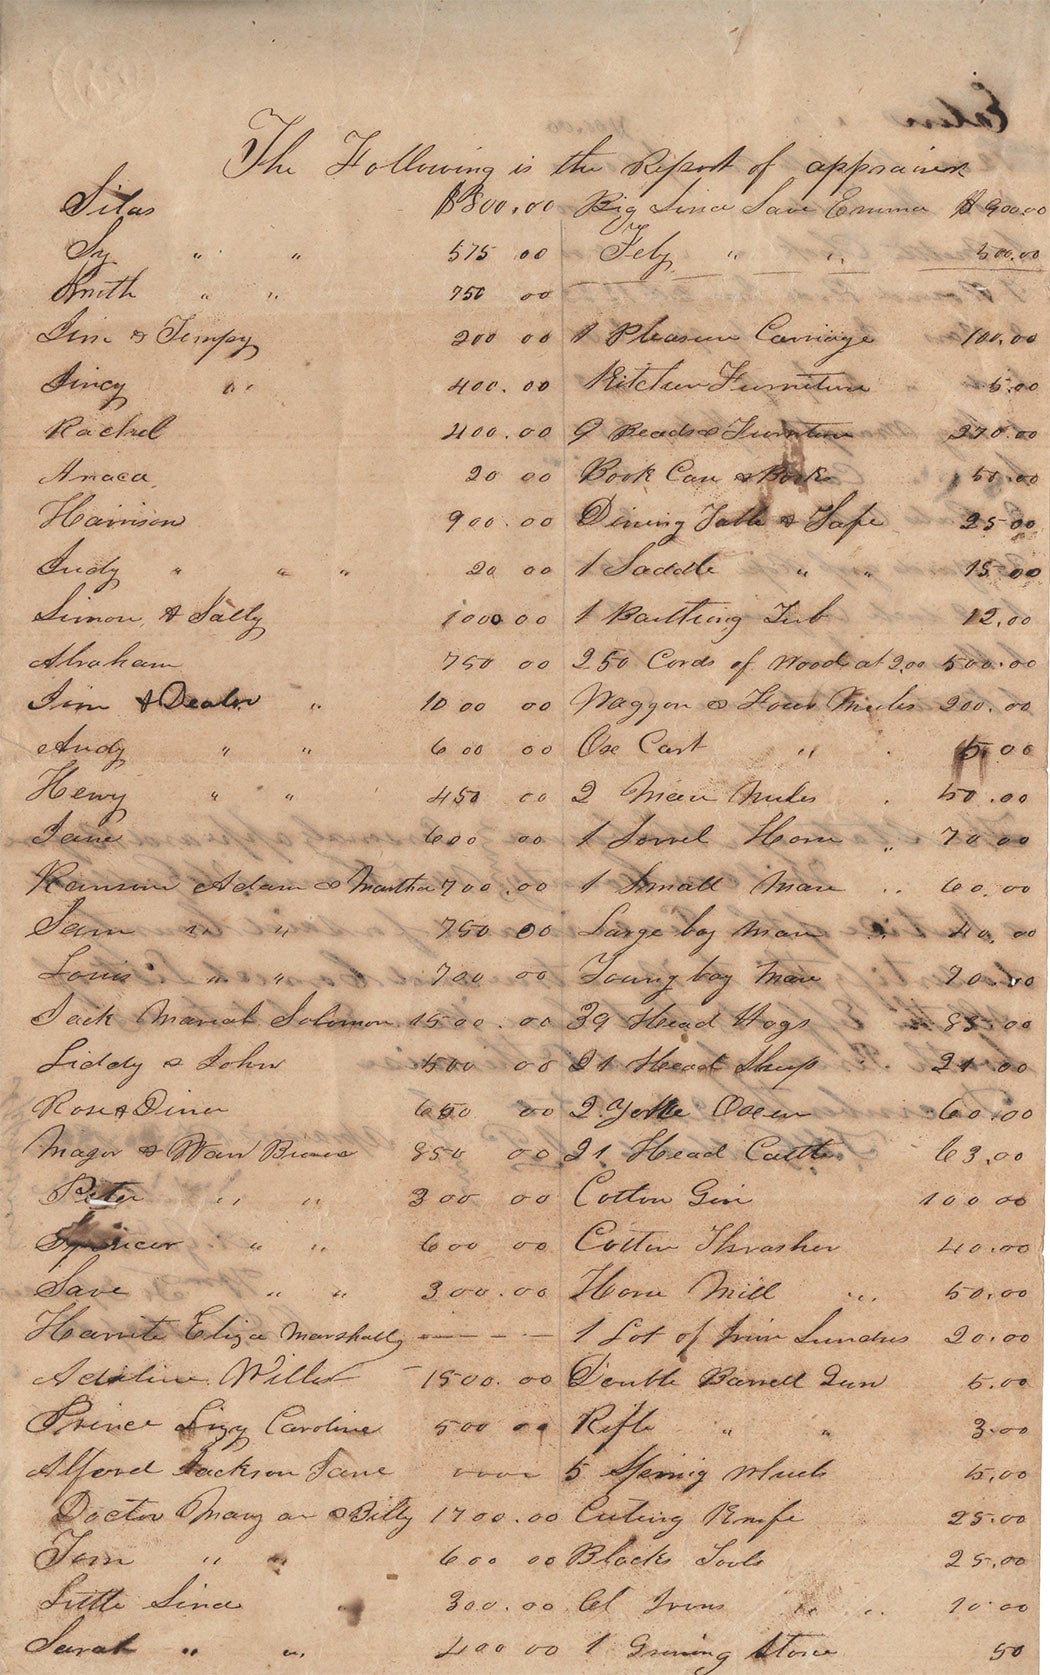 The Following is the Report of appraisers
Silas $800.00
Sy " " 575 00
Smith " " 750 00
Jim & Tempy 200 00
Jincy " 400.00
Rachel 400.00
Anaca 20 00
Harrison 900.00
Judy " " " 20 00
Simon & Sally 1000 00
Abraham 750 00
Jim & " 1000 00
Andy " " 600 00
Henry " " 450 00
Jane 600 00
Ransom Adam & Martha 700.00
Sam " " 750 00
Louis " " 700 00
Jack Mariah Solomon 1500.00
Liddy & John 500 00
Rose & Diner 00
Major & 850 00
Peter " " 300 00
Spencer " " 600 00
Save " " 300.00
Harrite Eliza Marshall
Adeline Willis 1500.00
Prince Lizy Caroline 500 00
Alford Jackson Jane
Doctor Mary an & Billy 1700.00
Tom " " 600 00
Little Lina 300.00
Sarah " " 400 00
Big Lina Save Emma $900.00
Feby " " 500.00
1 Pleasure Carriage 100.00
Kitchen Furniture 5.00
9 Beads & Furniture 270.00
Book Case & Books 50.00
Dining Table & Safe 25 00
1 Saddle " " 15 00
1 Baithing Tub 12.00
250 Cords of Wood at 2.00 500.00
Waggon & Four Mules 200.00
Ox Cart " 15.00
2 Mare Mules 50.00
1 Sorrel Horse " 70.00
1 Small Mare 60.00
Large bay Mare 40.00
Young bay Mare 70.00
39 Head Hogs 85.00
21 Head Sheep 21.00
2 Yoke Oxen 60.00
21 Head Cattle 63.00
Cotton Gin 100 00
Cotton Thrasher 40.00
Horse Mill " 50.00
1 Lot of Iron Sundres 20.00
Double Barrell Gun 5.00
Rifle " " 3.00
5 Spining wheels 5.00
Cuting Knife 25.00
Blacks Tools 25.00
Irons " " 10.00
1 Grining Stone 50